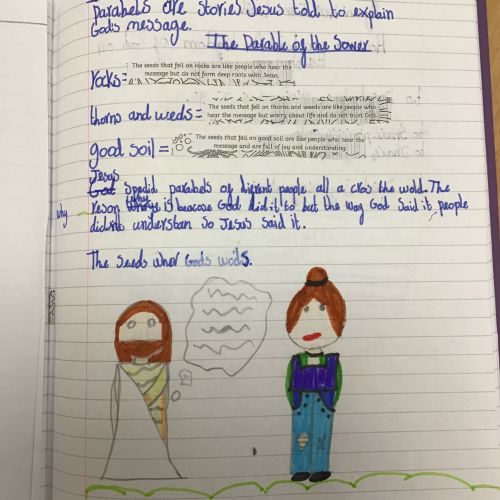 parabels are stories Jesus told to explain
God's message.
The Parable of the Sower
The seeds that fell on rocks are like people who hear the
rocks= message but do not form deep roots with Jesus.
The seeds that fell on thorns and weeds are like people who
thorns and weds = hear the message but worry about life and do not trust God.
The seeds that fell on good soil are like people who hear the
good soil = message and are full of joy and understanding.
Jesus
God Spedid parabels of difrent people all a cros the wold. The
why reson why is beacose God did it to but the way God Said it people
didwnt understan So Jesus Said it.
The Seeds wher Gods wods.